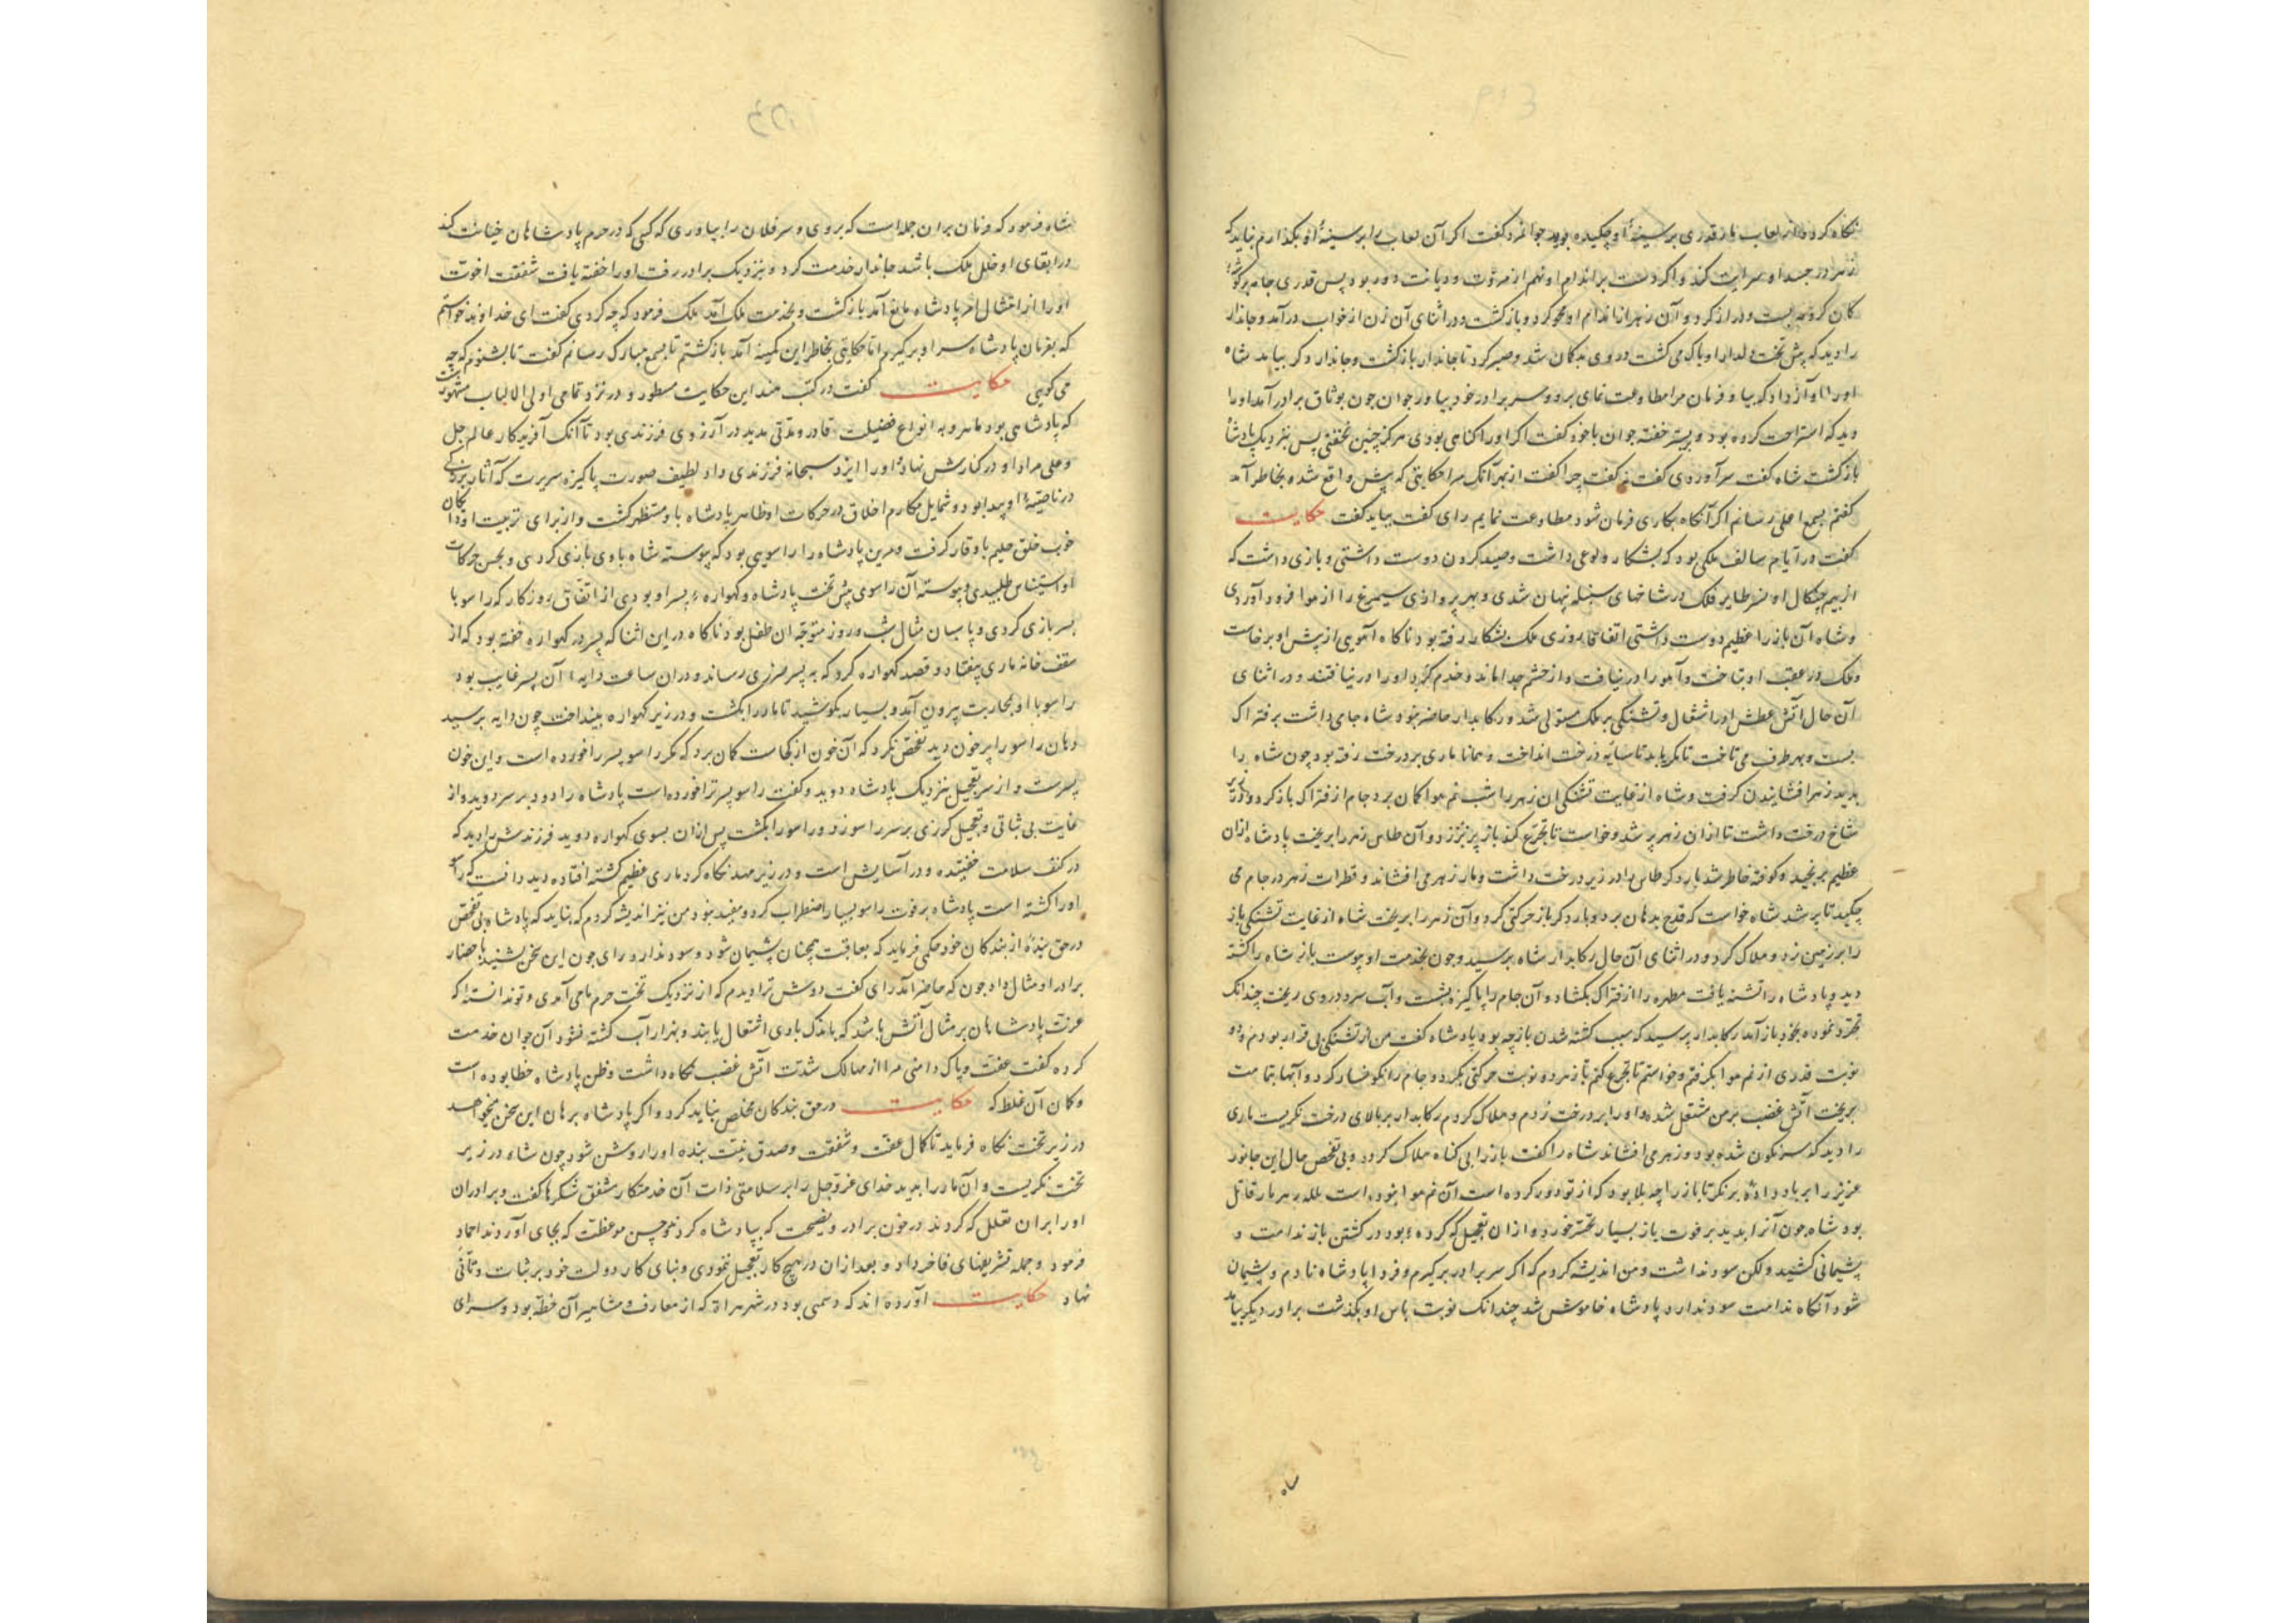 نکاه کرد از لعاب مار قدری بر سینهٔ او چکیده بود جوانمرد کفت اکر آن لعاب را بر سینهٔ او بکذارم نباید که
زهر در جسد او سرایت کند و اکر دست بر اندام او نهم از مروّت و دیانت دور بود پس قدری جامه بر کوشهٔ
کمان کروهه بست و دراز کرد و آن زهر از اندام او محو کرد و بازکشت و در اثنای آن زن از خواب درآمد و جاندار
را دید که پیش تخت دلدار او باک می کشت در وی بدکمان شد و صبر کرد تا جاندار بازکشت و جاندار دکر بیامد شاه
او را آواز داد که بیا و فرمان مرا مطاوعت نمای برو و سر برادر خود بیاور جوان چون بوثاق برادر آمد او را
دید که استراحت کرده بود و بستر خفته جوان با خود کفت اکر او را کناهی بودی هرکز چنین نخفتی پس بنزدیک پادشاه
بازکشت شاه کفت سر آوردی کفت نه کفت چرا کفت از بهر آنک مرا حکایتی که پیش واقع شده بخاطر آمد
کفتم بسمع اعلی رسانم اکر آنکاه بکاری فرمان شود مطاوعت نمایم رای کفت بباید کفت حکایت
کفت در ایام سالف ملکی بود که بشکار ولوعی داشت و صید کردن دوست داشتی و بازی داشت که
از بیم چنکال او نسر طایر فلک در شاخهای سنبله نهان شدی و بهر پروازی سیمرغ را از هوا فرود آوردی
و شاه آن باز را عظیم دوست داشتی اتفاقا روزی ملک بشکار رفته بود ناکاه آهویی از پیش او برخاست
و ملک در عقب او بتاخت و آهو را در نیافت و از حشم جدا ماند و خدم کرد او را در نیافتند و در اثنای
آن حال آتش عطش در اشتعال و تشنکی بر ملک مستولی شد و رکابدار حاضر نبود و شاه جامی داشت بر فتراک
بست و بهر طرف می تاخت تا بکر یابد تا سایه درخت انداخت و همانا ماری بر درخت رفته بود چون شاه را
بدید زهر افشاندن کرفت و شاه از غایت تشنکی آن زهر را شب نم هوا کمان برد جام از فتراک باز کرد و در زیر
شاخ درخت داشت تا از آن زهر پر شد و خواست تا تجرّع کند باز پر بزد و آن طاس زهر را بریخت پادشاه ازان
عظیم برنجید و کوفته خاطر شد بار دکر طاس را در زیر درخت داشت و مار زهر می افشاند و قطرات زهر در جام می
چکید تا پر شد شاه خواست که قدح بدهان برد و بار دکر باز حرکتی کرد و آن زهر را بریخت شاه از غایت تشنکی باز
را بر زمین زد و هلاک کرد و در اثنای آن حال رکابدار شاه برسید و چون بخدمت او پیوست باز شاه را کشته
دید و پادشاه را تشنه یافت مطهره را از فتراک بکشاد و آن جام را پاکیزه بشست و آب سرد در وی ریخت چندانک
بخود باز آمد رکابدار پرسید که سبب کشته شدن باز چه بود پادشاه کفت من از تشنکی بی قرار بودم و دو
نوبت قدری از نم هوا بکرفتم و خواستم تا تجرع کنم باز هر دو نوبت حرکتی بکرد و جام را نکوسار کرد و آبها بتمامت
بریخت آتش غضب بر من مشتعل شده و او را بر درخت زدم و هلاک کردم رکابدار بر بالای درخت نکریست ماری
را دید که سرنکون شده بود و زهر می افشاند شاه را کفت باز را بی کناه هلاک کردی و بی تفحص حال این جانور
عزیز را بر باد دادهٔ بنکر تا باز را چه بلا بود که از تو دور کرده است آن نم هوا نبوده است بلکه زهر مار قاتل
بود شاه چون آنرا بدید بر فوت باز بسیار تحسّر خورد و ازان تعجیل که کرده بود در کشتن باز ندامت و
پشیمانی کشید ولکن سود نداشت و من اندیشه کردم که اکر سر برادر برکیرم و فردا پادشاه نادم و پشیمان
شود آنکاه ندامت سود ندارد پادشاه خاموش شد چندانک نوبت پاس او بکذشت برادر دیکر بیامد
شاه
شاه فرمود که فرمان بران جمله است که بروی و سر فلان را بیاوری که کسی که در حرم پادشاهان خیانت کند
در ابقای او خلل ملک باشد جاندار خدمت کرد و بنزدیک برادر رفت او را خفته یافت شفقت اخوت
او را از امتثال امر پادشاه مانع آمد بازکشت و بخدمت ملک آمد ملک فرمود که چه کردی کفت ای خداوند خواستم
که بفرمان پادشاه سر او برکیرم اما حکایتی بخاطر این کمینه آمد بازکشتم تا بسمع مبارک رسانم کفت تا بشنوم که چه
می کویی حکایت کفت در کتب هند این حکایت مسطور و در نزد تمامی اولی الالباب مشهور است
که پادشاهی بود ماهر و به انواع فضیلت قادر و مدتی مدید در آرزوی فرزندی بود تا آنک آفریدکار عالم جل
و علی مراد او در کنارش نهاد و او را ایزد سبحانه فرزندی داد لطیف صورت پاکیزه سیرت که آثار بزرکی
در ناصیهٔ او پیدا بود و شمایل مکارم اخلاق در حرکات او ظاهر پادشاه باو مستظهر کشت و از برای تربیت او دایکان
خوب خلق حلیم باوقار کرفت و مرین پادشاه را راسویی بود که پیوسته شاه با وی بازی کردی و بحسن حرکات
او استیناس طلبیدی و پیوسته آن راسو پیش تخت پادشاه و کهوارهٔ پسر او بودی از اتفاق روزکار که راسو با
پسر بازی کردی و پاسبان مثال شب و روز متوجه ان طفل بود ناکاه در این اثنا که پسر در کهواره خفته بود که از
سقف خانه ماری بیفتاد و قصد کهواره کرد که به پسر ضرری رساند و دران ساعت دایهٔ آن پسر غایب بود
راسو با او بمحاربت بیرون آمد و بسیار بکوشید تا مار را بکشت و در زیر کهواره بینداخت چون دایه برسید
دهان راسو را پر خون دید تفحص نکرد که آن خون از کجاست کمان برد که مکر راسو پسر را خورده است و این خون
پسرست و از سر تعجیل بنزدیک پادشاه دوید و کفت راسو پسر ترا خورده است پادشاه را دود بر سر دوید و از
غایت بی ثباتی و تعجیل کرزی بر سر راسو زد و راسو را بکشت پس ازان بسوی کهواره دوید فرزندش را دید که
در کنف سلامت خفته و در آسایش است و در زیر مهد نکاه کرد ماری عظیم کشته افتاده دید دانست که راسو
او را کشته است پادشاه بر فوت راسو بسیار اضطراب کرد و مفید نبود من نیز اندیشه کردم که نباید که پادشاه بی تفحص
در حق بندهٔ از بندکان خود حکمی فرماید که بعاقبت همچنان پشیمان شود و سود ندارد رای چون این سخن بشنید باحضار
برادر او مثال داد چون که حاضر آمد رای کفت دوش ترا دیدم که از نزدیک تخت حرم ما می آمدی و تو ندانسته ا که
عزت پادشاهان بر مثال آتش باشد که باندک بادی اشتعال یابد و بهزار آب کشته نشود آن جوان خدمت
کرد و کفت عفت و پاک دامنی مرا از مهالک شدت آتش غضب نکاه داشت و ظن پادشاه خطا بوده است
و کمان آن غلط که حکایت در حق بندکان مخلص نباید کرد و اکر پادشاه برهان این سخن میخواهد
در زیر تخت نکاه فرماید تا کمال عفت و شفقت و صدق نیت بنده او را روشن شود چون شاه در زیر
تخت نکریست و آن مار را بدید خدای عزوجل را بر سلامتی ذات آن خدمتکار مشفق شکرها کفت و برادران
او را بران تعلل که کردند در خون برادر و نصیحت که بپادشاه کردند و حسن موعظت که بجای آوردند احماد
فرمود و جمله تشریفهای فاخر داد و بعد ازان در هیچ کار تعجیل ننمودی و بنای کار دولت خود بر ثبات و تأنی
نهاد حکایت آورده اند که دسمنی بود در شهر هراة که از معارف و مشاهیر آن خطه بود و سرای